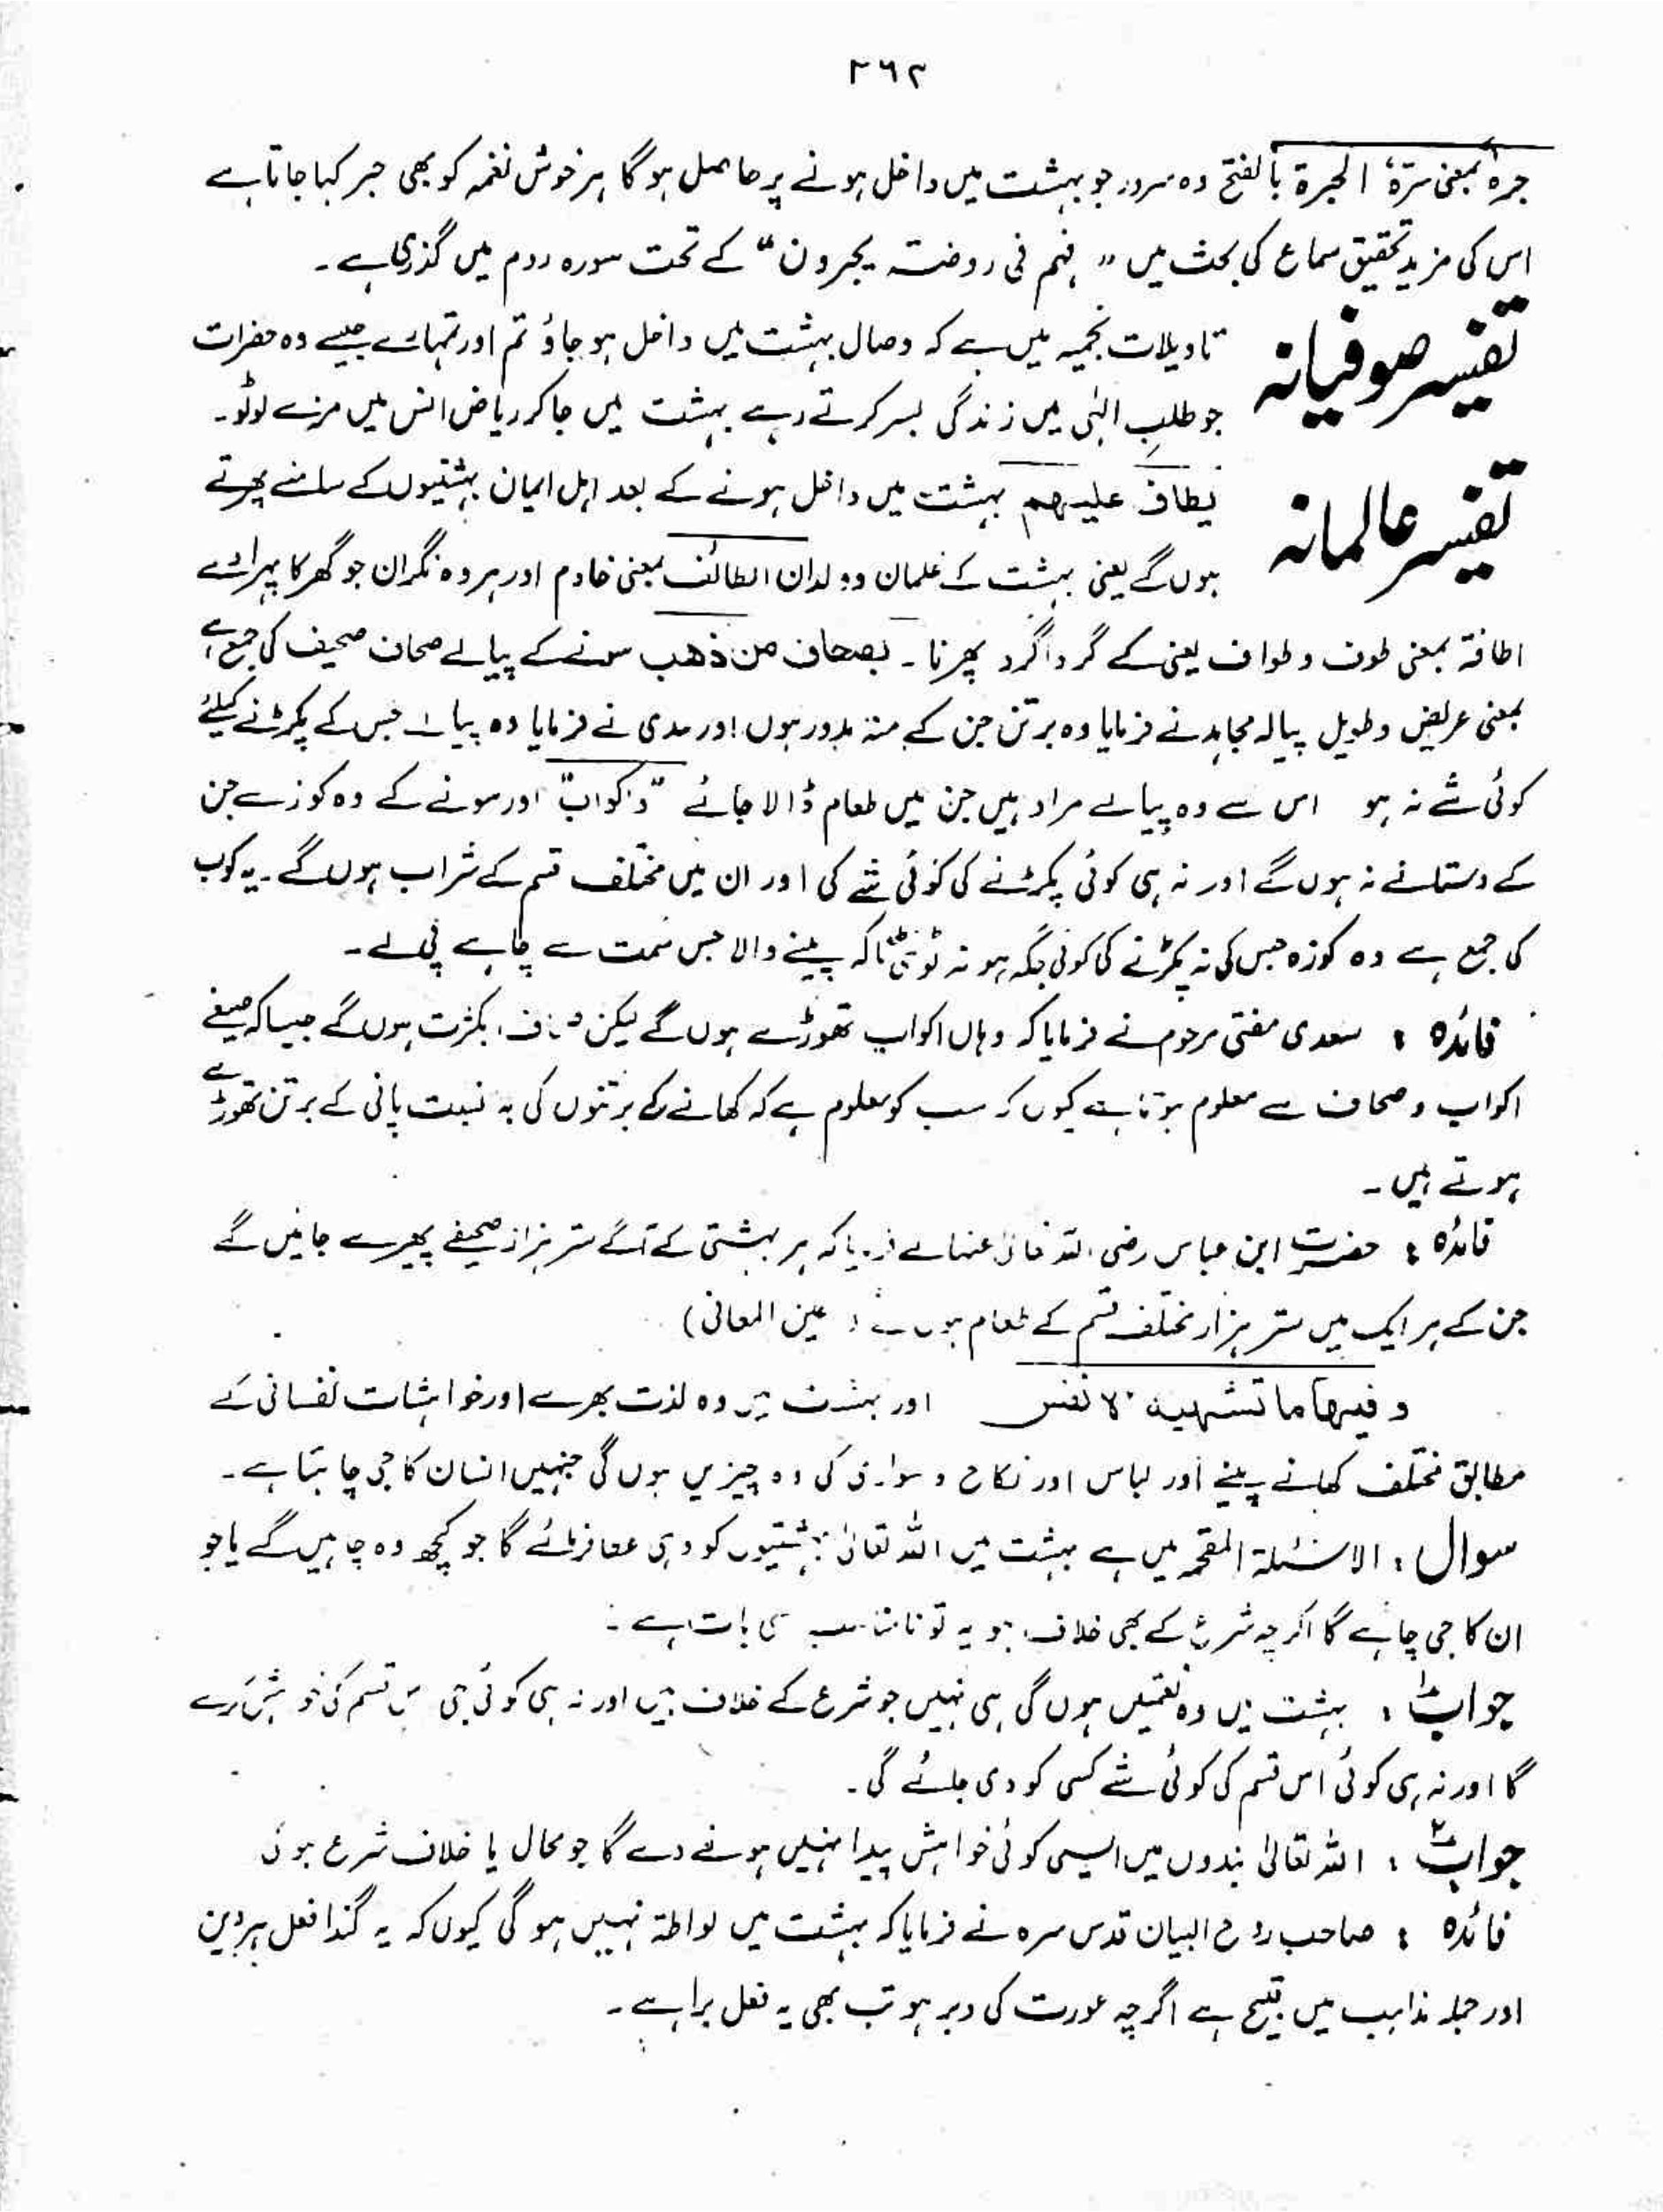 ۲۶۲
حبرہ بمعنی سترۃ، الحبرۃ بالفتح وہ سرور جو بہشت میں داخل ہونے پر حاصل ہو گا ہر خوش نغمہ کو بھی حبر کہا جاتا ہے
اس کی مزید تحقیق سماع کی بحث میں "فہم فی روضتہ یحبرون" کے تحت سورہ روم میں گذری ہے۔
تفسیر صوفیانہ
تاویلات نجمیہ میں ہے کہ وصال بہشت میں داخل ہو جاؤ تم اور تمہارے جیسے وہ حضرات
جو طلب الہٰی میں زندگی بسر کرتے رہے بہشت میں جا کر ریاض انس میں مزے لوٹو۔
تفسیر عالمانہ
یطاف علیہم بہشت میں داخل ہونے کے بعد اہل ایمان بہشتیوں کے سامنے پھرتے
ہوں گے یعنی بہشت کے غلمان و ولدان الطائف بمعنی خادم اور ہر وہ نگران جو گھر کا پہرا دے
اطافۃ بمعنی طوف و طواف یعنی کے گرداگرد پھرنا۔ بصحاف من ذھب سونے کے پیالے صحاف صحیف کی جمع ہے
بمعنی عریض و طویل پیالہ مجاہد نے فرمایا وہ برتن جن کے منہ مدور ہوں اور سدی نے فرمایا وہ پیالے جس کے پکڑنے کیلئے
کوئی شے نہ ہو اس سے وہ پیالے مراد ہیں جن میں طعام ڈالا جائے "واکواب" اور سونے کے وہ کوزے جن
کے دستانے نہ ہوں گے اور نہ ہی کوئی پکڑنے کی کوئی شے کی اور ان میں مختلف قسم کے شراب ہوں گے۔ یہ کوب
کی جمع ہے وہ کوزہ جس کی نہ پکڑنے کی کوئی جگہ ہو نہ ٹونٹی تاکہ پینے والا جس سمت سے چاہے پی لے۔
فائدہ : سعدی مفتی مرحوم نے فرمایا کہ وہاں اکواب تھوڑے ہوں گے لیکن بکثرت ہوں گے جیسا کہ صیغے
اکواب و صحاف سے معلوم ہوتا ہے کیوں کہ سب کو معلوم ہے کہ کھانے کے برتنوں کی بہ نسبت پانی کے برتن تھوڑے
ہوتے ہیں۔
فائدہ : حضرت ابن عباس رضی اللہ تعالیٰ عنہما نے فرمایا کہ ہر بہشتی کے آگے ستر ہزار صحیفے پھیرے جائیں گے
جن کے ہر ایک میں ستر ہزار مختلف قسم کے طعام ہوں گے (عین المعانی)
وفیہا ما تشتہیہ الانفس اور بہشت میں وہ لذت بھرے اور خواہشات نفسانی کے
مطابق مختلف کھانے پینے اور لباس اور نکاح و سواری کی وہ چیزیں ہوں گی جنہیں انسان کا جی چاہتا ہے۔
سوال : الاسئلۃ المقحمہ میں ہے بہشت میں اللہ تعالیٰ بہشتیوں کو وہی عطا فرمائے گا جو کچھ وہ چاہیں گے یا جو
ان کا جی چاہے گا اگرچہ شرع کے بھی خلاف ہو یہ تو نامناسب سی بات ہے۔
جواب ۱ : بہشت میں وہ نعمتیں ہوں گی ہی نہیں جو شرع کے خلاف ہیں اور نہ ہی کوئی بھی اس قسم کی خواہش کرے
گا اور نہ ہی کوئی اس قسم کی کوئی شے کسی کو دی جائے گی۔
جواب ۲ : اللہ تعالیٰ بندوں میں ایسی کوئی خواہش پیدا نہیں ہونے دے گا جو محال یا خلاف شرع ہو گی
فائدہ : صاحب روح البیان قدس سرہ نے فرمایا کہ بہشت میں لواطۃ نہیں ہو گی کیوں کہ یہ گندا فعل ہر دین
اور جملہ مذاہب میں قبیح ہے اگرچہ عورت کی دبر ہو تب بھی یہ فعل برا ہے۔